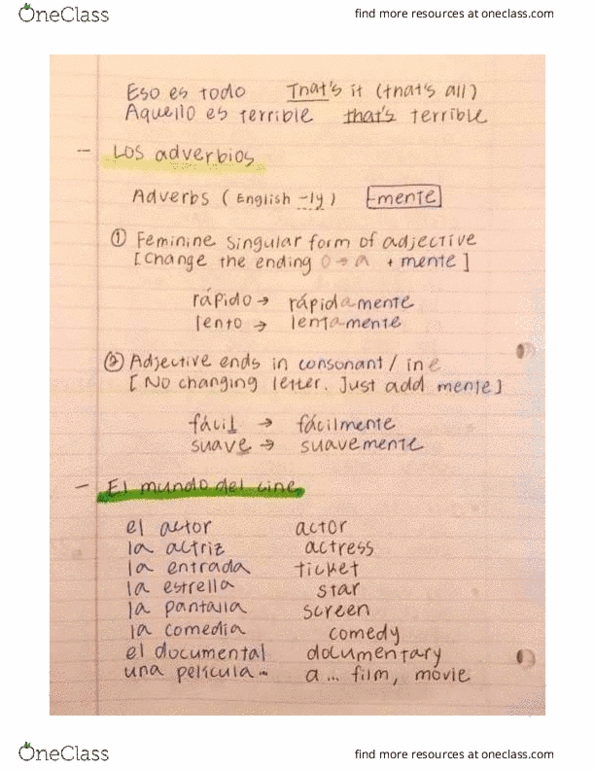 OneClass
find more resources at oneclass.com
Eso es todo That's it (that's all)
Aquello es terrible that's terrible
- Los adverbios
Adverbs (English -ly) -mente
① Feminine singular form of adjective
[Change the ending o → a + mente]
rápido → rápidamente
lento → lentamente
② Adjective ends in consonant / in e
[No changing letter. Just add mente]
fácil → fácilmente
suave → suavemente
- El mundo del cine
el actor actor
la actriz actress
la entrada ticket
la estrella star
la pantalla screen
la comedia comedy
el documental documentary
una película... a ... film, movie
OneClass
find more resources at oneclass.com